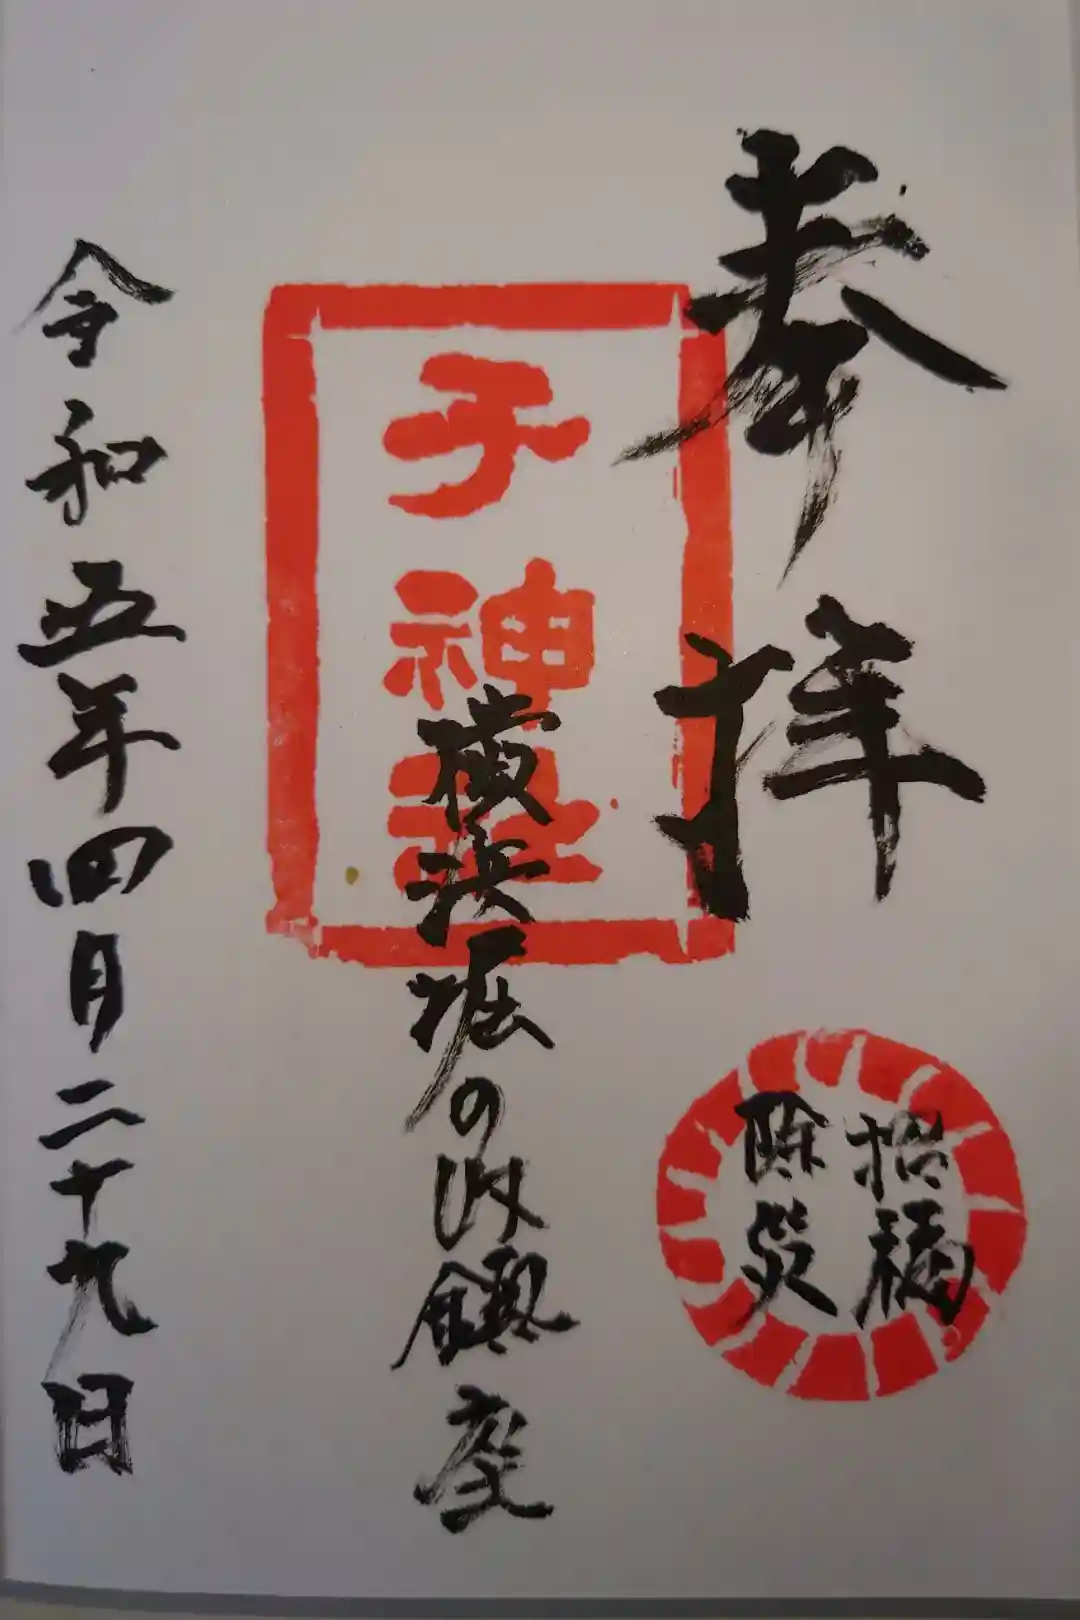 奉拝
招福
除災
子神社
横浜堀の内鎮座
令和五年四月二十九日